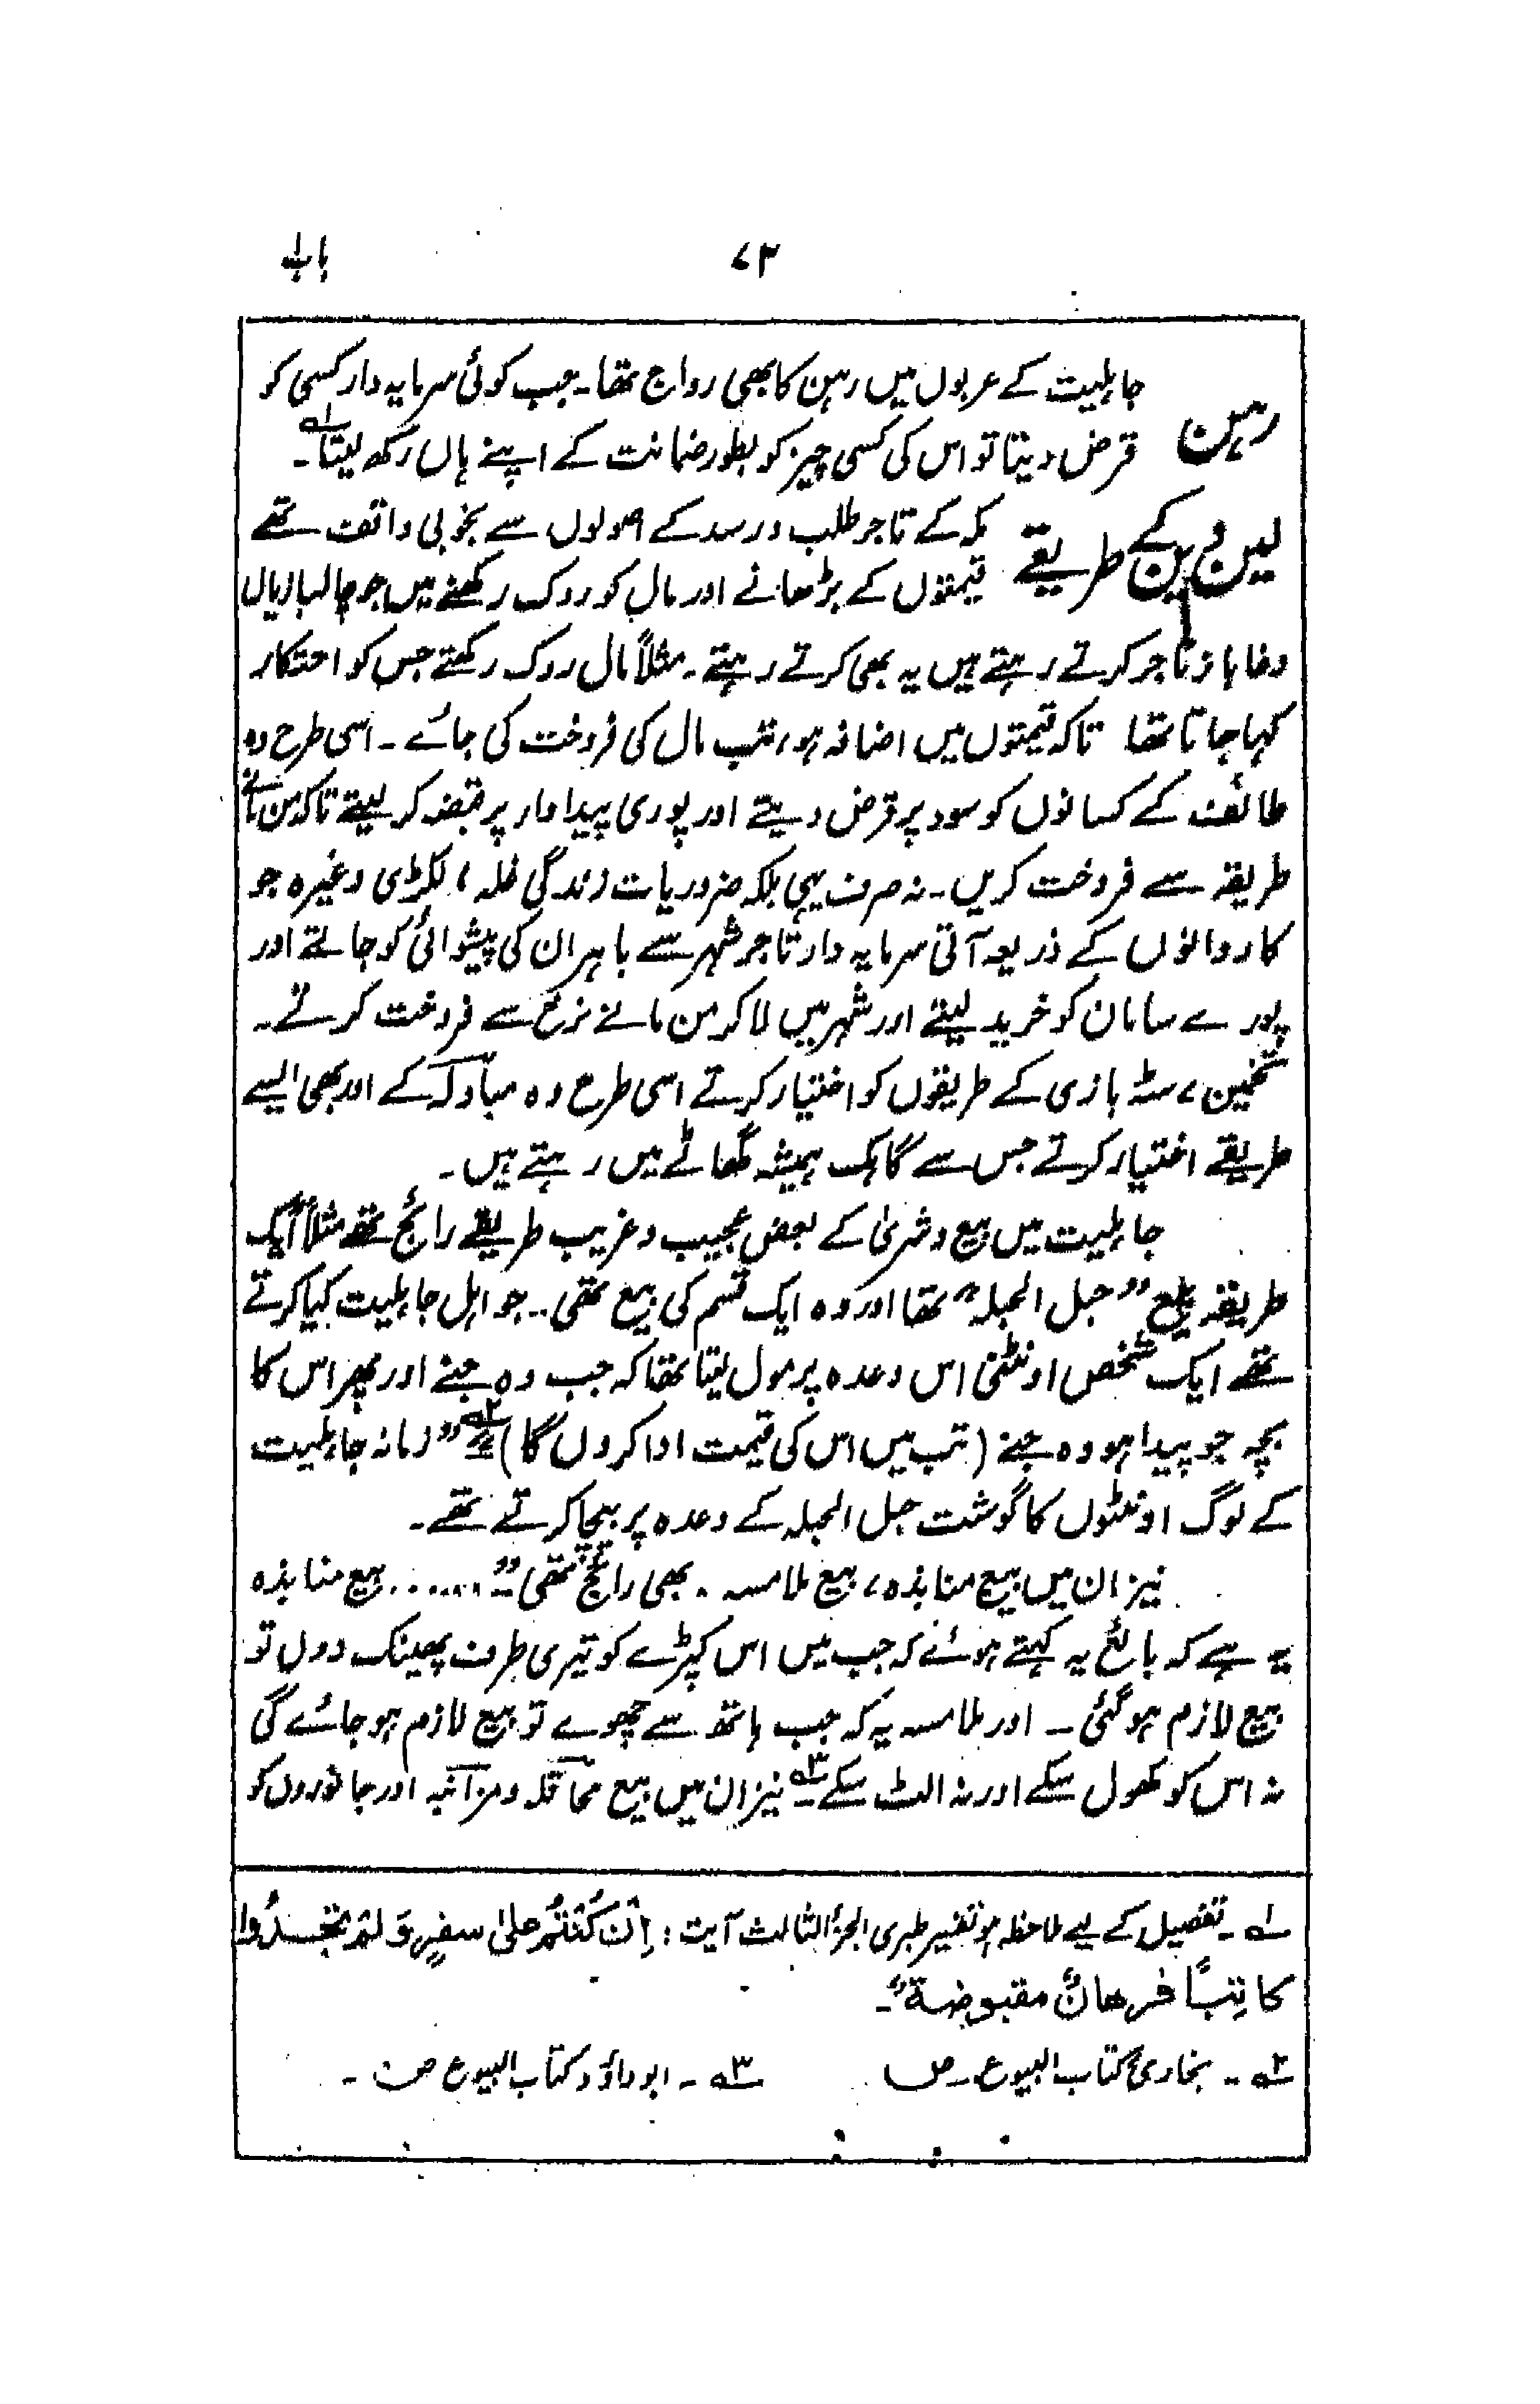 ۷۳ باب
جاہلیت کے عربوں میں رہن کا بھی رواج تھا۔ جب کوئی سرمایہ دار کسی کو
رہن قرض دیتا تو اس کی کسی چیز کو بطور ضمانت کے اپنے ہاں رکھ لیتا۔ لہ
مکہ کے تاجر طلب و رسد کے اصولوں سے بخوبی واقف تھے
لین دین کے طریقے قیمتوں کے بڑھانے اور مال کو روک رکھنے میں جو چالبازیاں
دغا باز تاجر کرتے رہتے ہیں یہ بھی کرتے رہتے۔ مثلاً مال روک رکھتے جس کو احتکار
کہا جاتا تھا تاکہ قیمتوں میں اضافہ ہو، تب مال کی فروخت کی جائے۔ اسی طرح وہ
طائف کے کسانوں کو سود پر قرض دیتے اور پوری پیداوار پر قبضہ کر لیتے تاکہ من مانے
طریقہ سے فروخت کریں۔ نہ صرف یہی بلکہ ضروریات زندگی غلہ، لکڑی وغیرہ جو
کاروانوں کے ذریعہ آتی سرمایہ دار تاجر شہر سے باہر ان کی پیشوائی کو جاتے اور
پورے سامان کو خرید لیتے اور شہر میں لا کر من مانے نرخ سے فروخت کرتے۔
تخمین، سٹہ بازی کے طریقوں کو اختیار کرتے اسی طرح وہ مبادلہ کے اور بھی ایسے
طریقے اختیار کرتے جس سے گاہک ہمیشہ گھاٹے میں رہتے ہیں۔
جاہلیت میں بیع و شریٰ کے بعض عجیب و غریب طریقے رائج تھے مثلاً ایک
طریقہ بیع ”حبل الحبلہ“ تھا اور وہ ایک قسم کی بیع تھی۔۔ جو اہل جاہلیت کیا کرتے
تھے ایک شخص اونٹنی اس وعدہ پر مول لیتا تھا کہ جب وہ جنے اور پھر اس کا
بچہ جو پیدا ہو وہ جنے (تب میں اس کی قیمت ادا کروں گا) ۲ہ ”زمانہ جاہلیت
کے لوگ اونٹوں کا گوشت حبل الحبلہ کے وعدہ پر بیچا کرتے تھے۔
نیز ان میں بیع منابذہ، بیع ملامسہ۔ بھی رائج تھی ”...... بیع منابذہ
یہ ہے کہ بائع یہ کہتے ہوئے کہ جب میں اس کپڑے کو تیری طرف پھینک دوں تو
بیع لازم ہو گئی۔ اور ملامسہ یہ کہ جب ہاتھ سے چھوے تو بیع لازم ہو جائے گی
نہ اس کو کھول سکے اور نہ الٹ سکے ۳ہ نیز ان میں بیع محاقلہ و مزابنہ اور جانوروں کو
لہ۔ تفصیل کے لیے ملاحظہ ہو تفسیر طبری الجزء الثالث آیت: اِنْ کُنْتُمْ علیٰ سفرٍ وَلَمْ تَجِدُوا
کاتِبًا فرھانٌ مقبوضۃ“۔
۲ہ۔ بخاری کتاب البیوع۔ ص ۳ہ۔ ابوداؤد کتاب البیوع ص۔